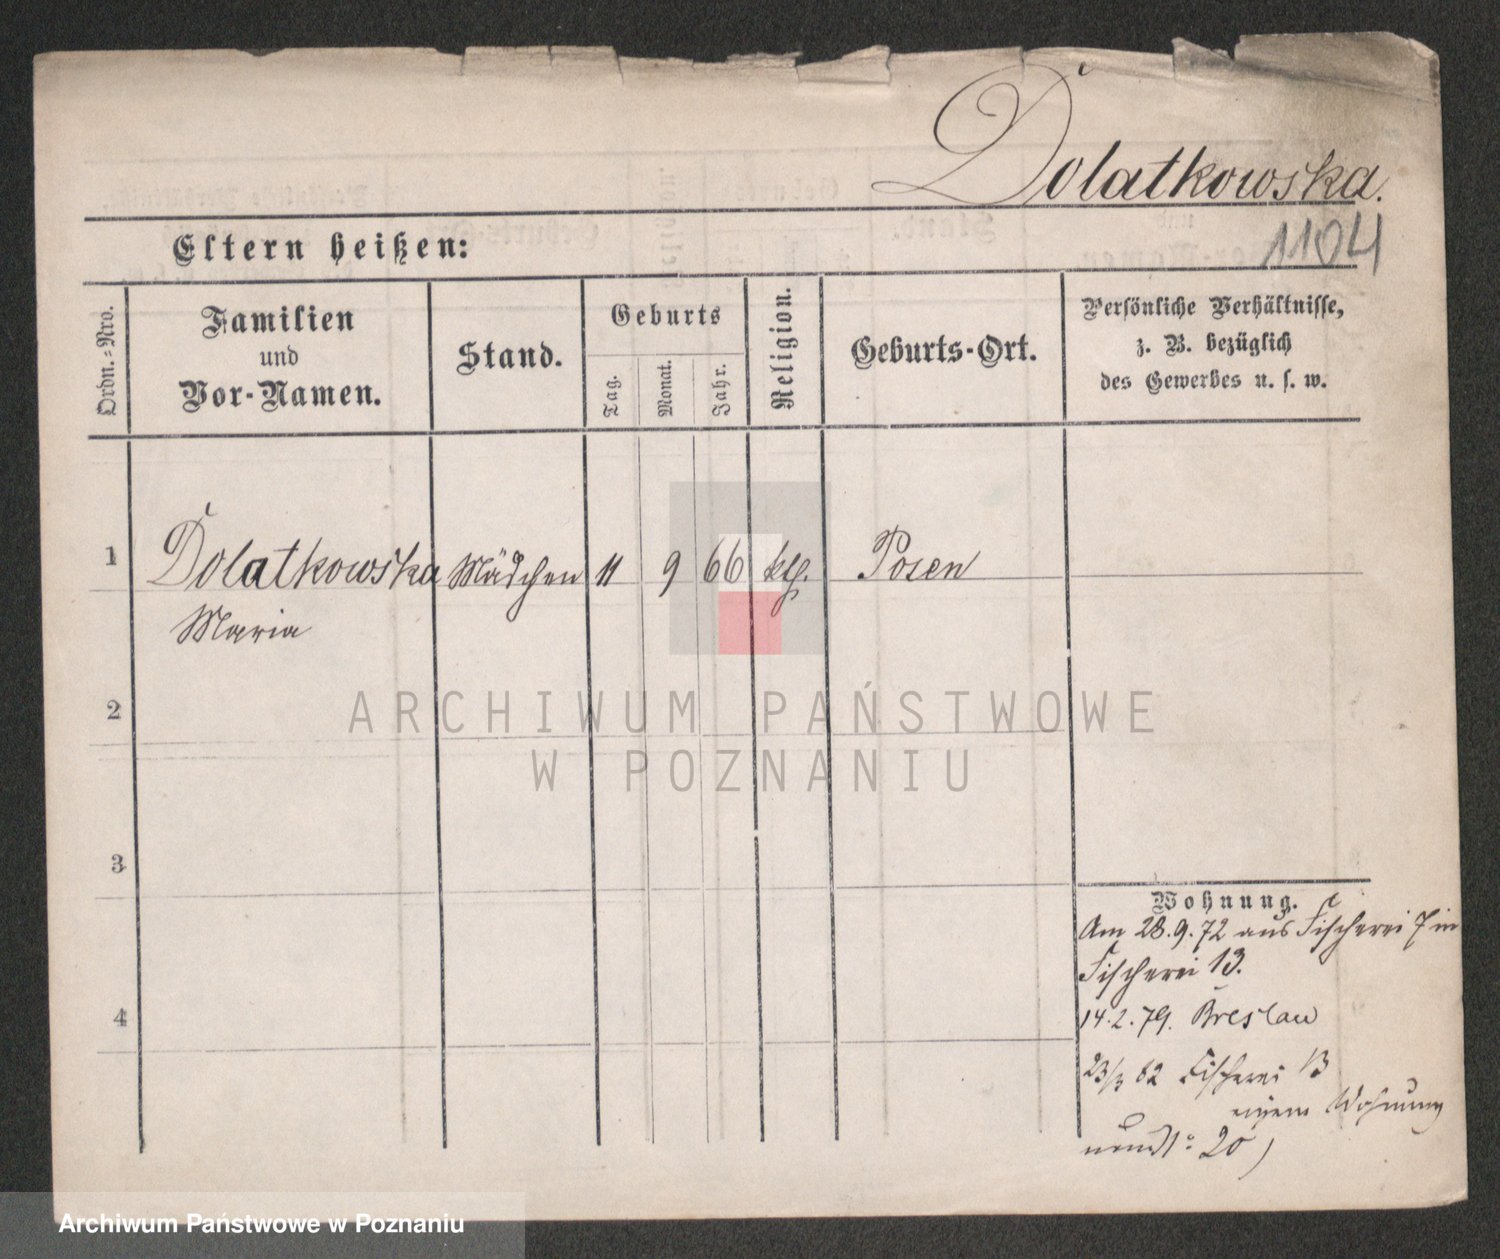 Dolatkowska.
1104
Eltern heißen:
Ordn.=Nro.
Familien
und
Vor-Namen.
Stand.
Geburts
Tag.
Monat.
Jahr.
Religion.
Geburts-Ort.
Persönliche Verhältnisse,
z. B. bezüglich
des Gewerbes u. s. w.
1
Dolatkowska Mädchen 11 9 66 kth. Posen
Maria
ARCHIWUM PAŃSTWOWE
W POZNANIU
2
3
4
Wohnung.
Am 28.9.72 aus Fischerei 7 in
Fischerei 13.
14.2.79. Breslau
23/3 82 Fischerei 13
Wohnung
20)
Archiwum Państwowe w Poznaniu